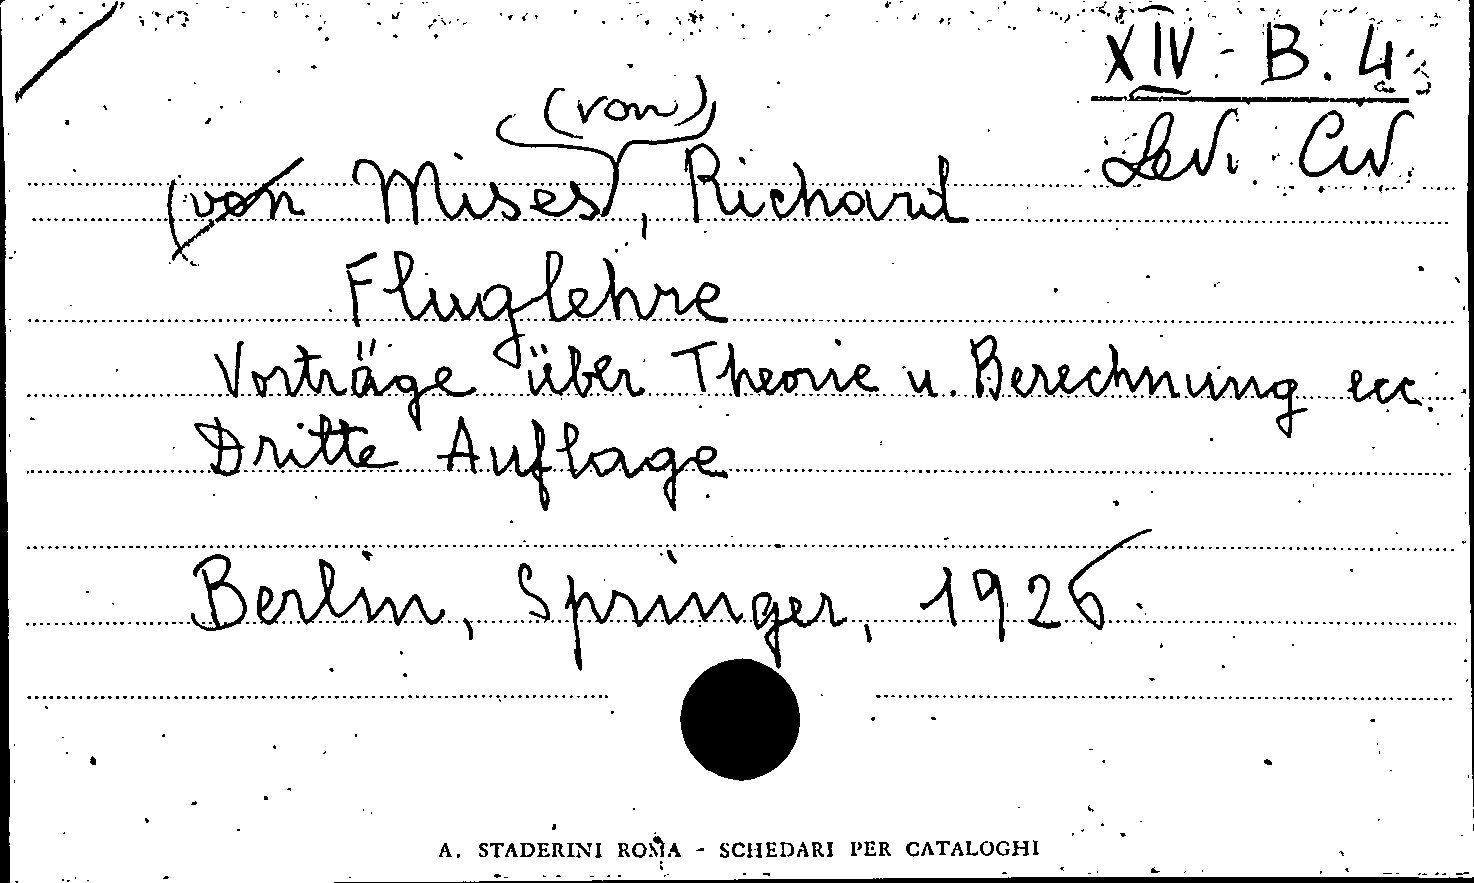 XIV - B. 4
Lev. Civ
(von)
(von Mises, Richard
Fluglehre
Vorträge über Theorie u. Berechnung ecc.
Dritte Auflage
Berlin, Springer, 1926
A. STADERINI ROMA - SCHEDARI PER CATALOGHI